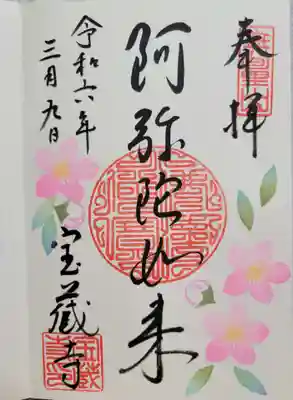 奉拝
阿弥陀如来
令和六年
三月九日
宝蔵寺